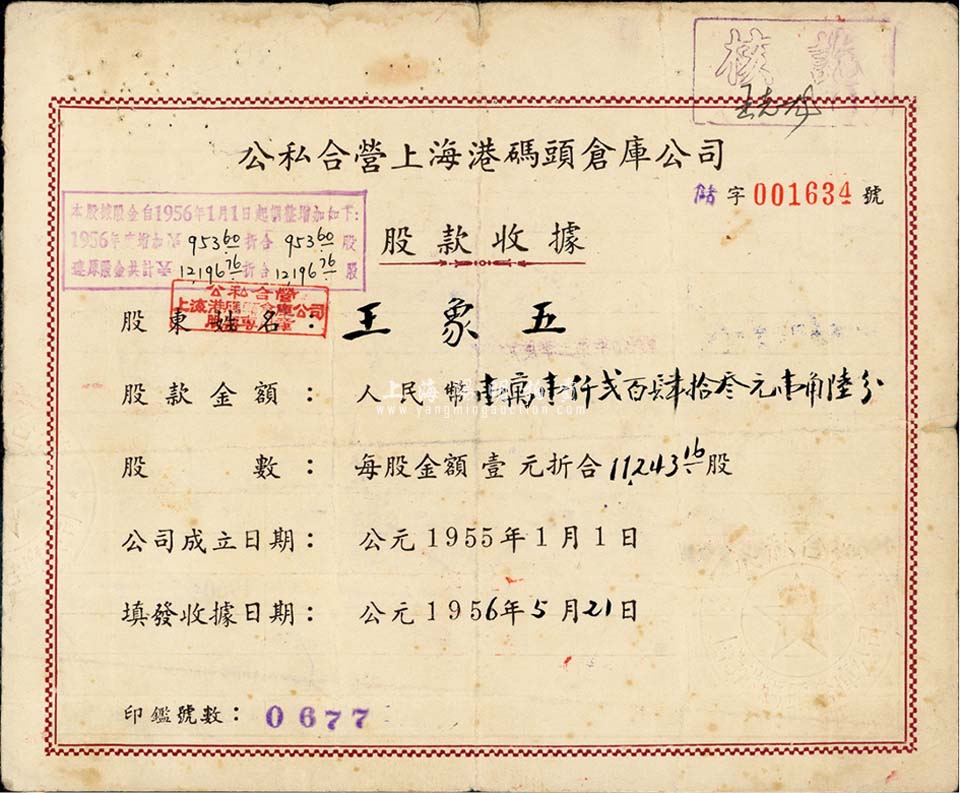 核訖
公私合營上海港碼頭倉庫公司
字 001634 號
本股據股金自1956年1月1日起調整增加如下:
1956年度增加¥953.60折合953.60股
連原股金共計¥12,196.76折合12,196.76股
股款收據
公私合營
上海港碼頭倉庫公司
股東姓名: 王象五
股款金額: 人民幣壹萬壹仟弍百肆拾叁元壹角陸分
www.yangmingauction.com
股數: 每股金額壹元折合11,243.16股
公司成立日期: 公元1955年1月1日
填發收據日期: 公元1956年5月21日
印鑑號數: 0677